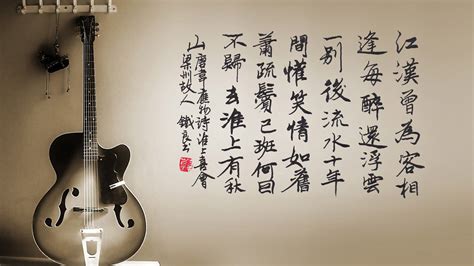 江漢曾為客相
逢每醉還浮雲
一別後流水十年
間懽笑情如舊
蕭疏鬢已班何因
不歸去淮上有秋
山 唐韋應物詩淮上喜會
梁州故人 鐵良书